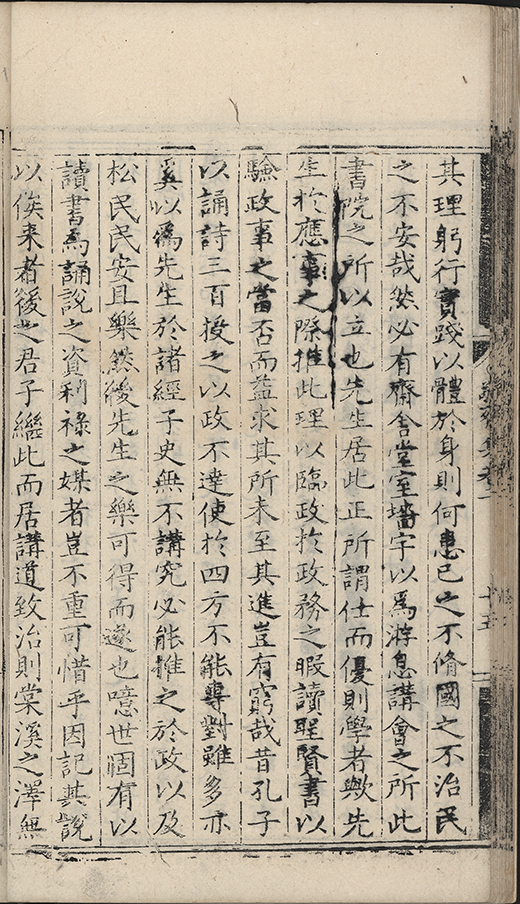 其理躬行實踐以體於身則何患己之不脩國之不治民
之不安哉然必有齋舍堂室墻宇以爲游息講會之所此
書院之所以立也先生居此正所謂仕而優則學者歟先
生於應事之際推此理以臨政於政務之暇讀聖賢書以
驗政事之當否而益求其所未至其進豈有窮哉昔孔子
以誦詩三百授之以政不達使於四方不能專對雖多亦
奚以爲先生於諸經子史無不講究必能推之於政以及
松民民安且樂然後先生之樂可得而遂也噫世固有以
讀書爲誦說之資利祿之媒者豈不重可惜乎因記其說
以俟来者後之君子繼此而居講道致治則棠溪之澤無